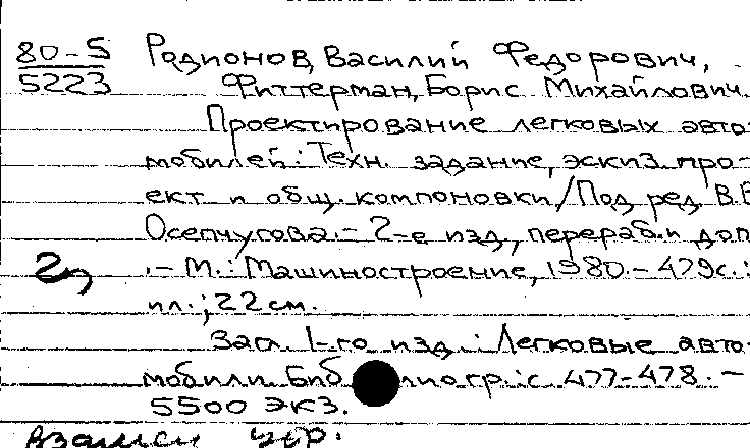 80-5 Родионов, Василий Федорович,
5223 Фиттерман, Борис Михайлович.
Проектирование легковых авто-
мобилей: Техн. задание, эскиз. про-
ект и общ. компоновки / Под ред. В.В
Осепчугова. - 2-е изд., перераб. и доп
. - М.: Машиностроение, 1980. - 479с.:
ил.; 22 см.
Загл. 1-го изд.: Легковые авто-
мобили. Библиогр.: с. 477-478. -
5500 экз.
взамен